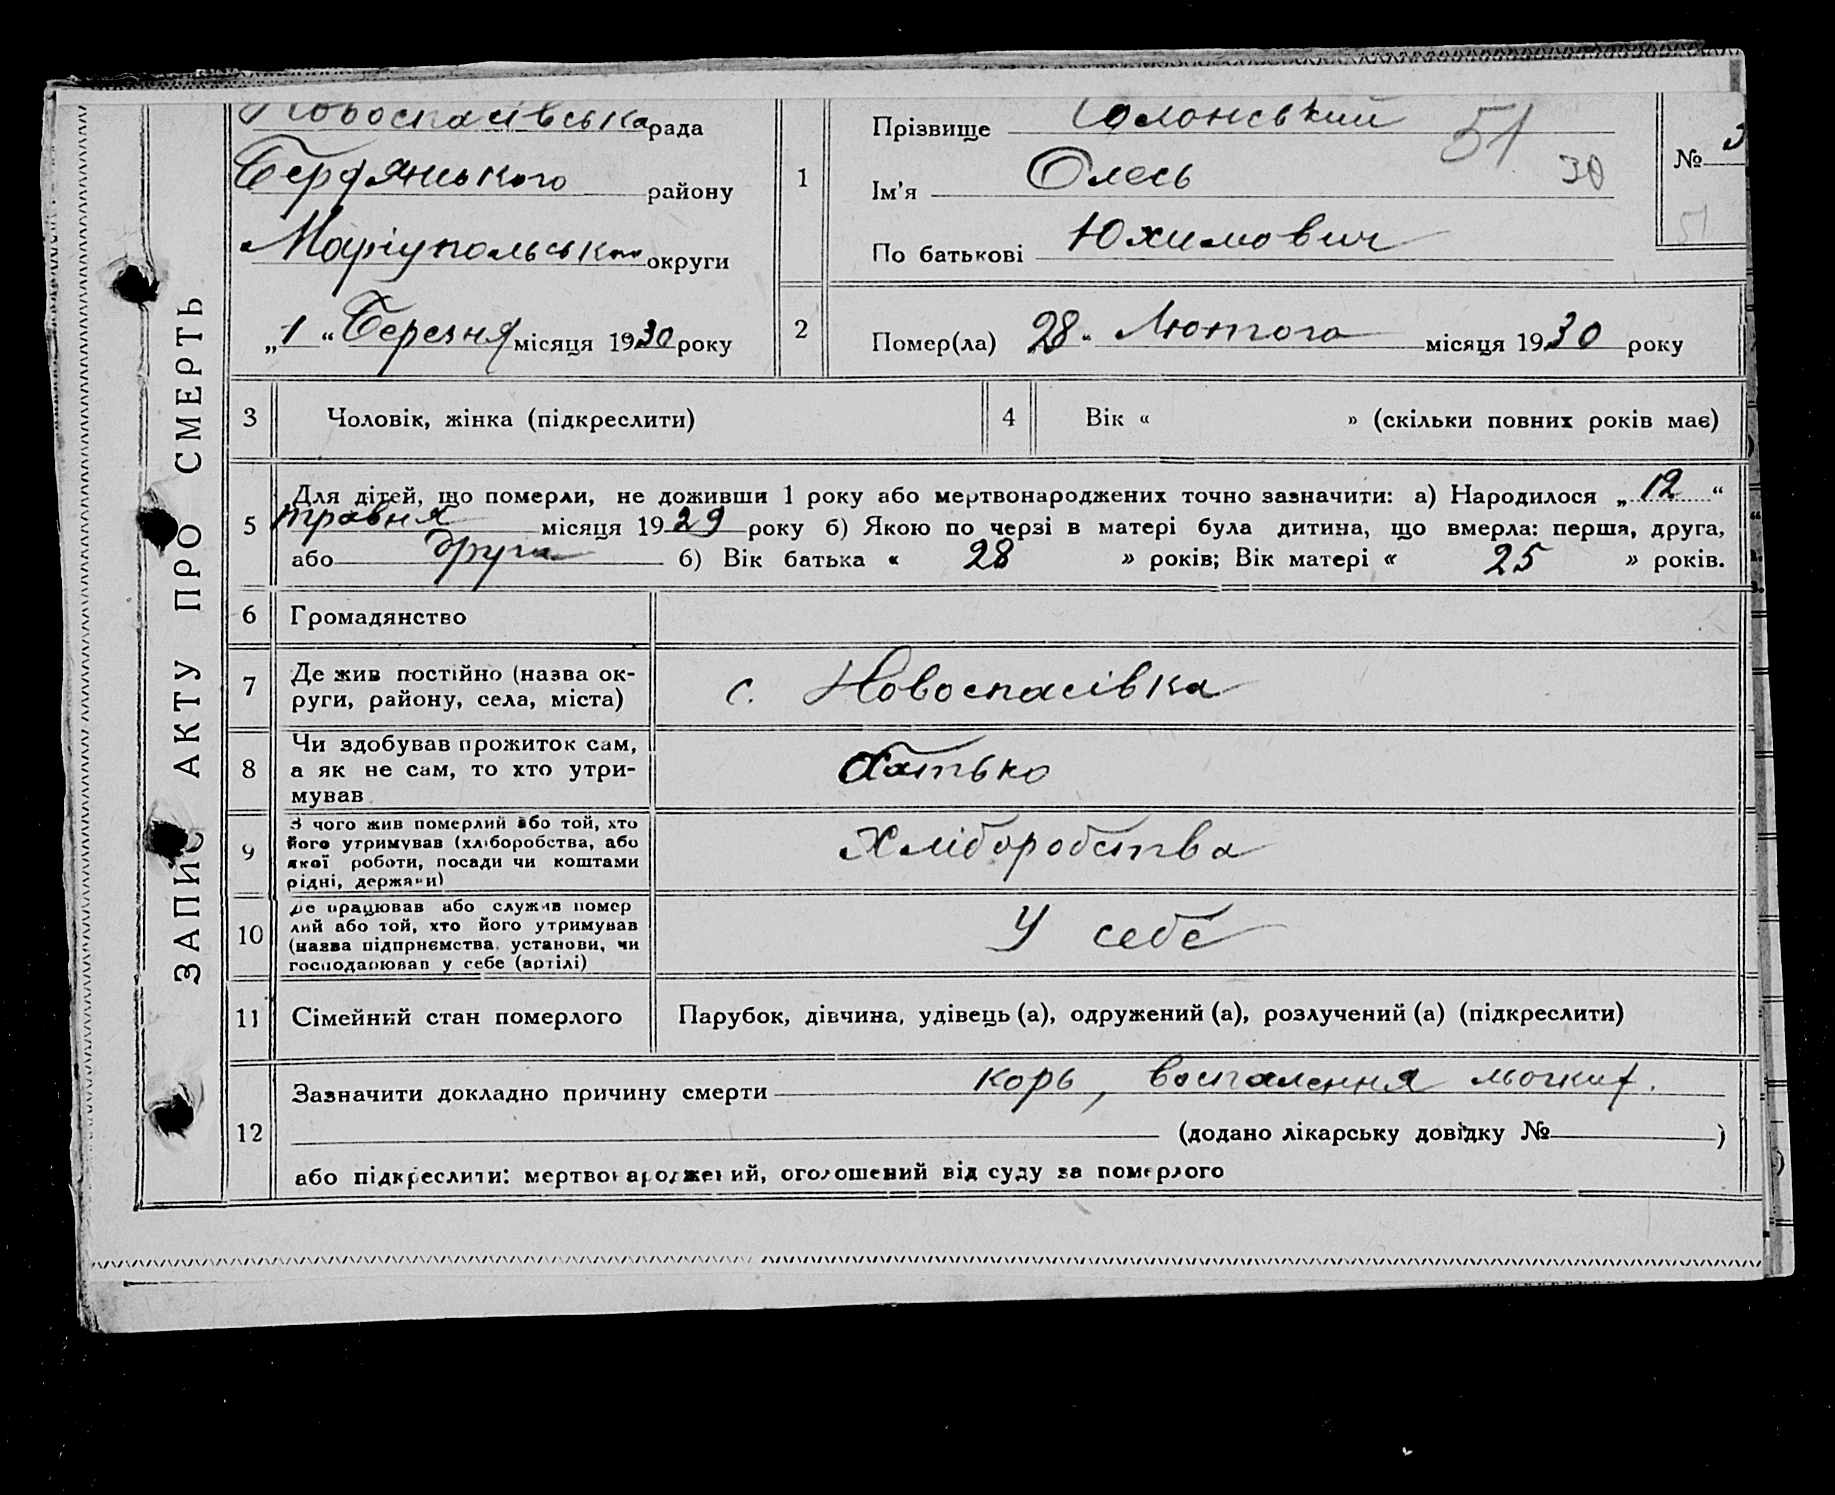 ЗАПИС АКТУ ПРО СМЕРТЬ
Новоспасівська рада
Бердянського району
Маріупольської округи
„1“ Березня місяця 1930 року
1
Прізвище Солонський
Ім'я Олесь
По батькові Юхимович
51
30
№ 3
51
2
Помер(ла) 28 „ Лютого місяця 1930 року
3 Чоловік, жінка (підкреслити)
4 Вік « » (скільки повних років має)
5 Для дітей, що померли, не доживши 1 року або мертвонароджених точно зазначити: а) Народилося „12“
травня місяця 1929 року б) Якою по черзі в матері була дитина, що вмерла: перша, друга,
або друга б) Вік батька « 28 » років; Вік матері « 25 » років.
6 Громадянство
7 Де жив постійно (назва ок-
руги, району, села, міста)
с. Новоспасівка
8 Чи здобував прожиток сам,
а як не сам, то хто утри-
мував
батько
9 З чого жив померлий або той, хто
його утримував (хліборобства, або
якої роботи, посади чи коштами
рідні, держави)
Хліборобства
10 Де працював або служив помер
лий або той, хто його утримував
(назва підприємства, установи, чи
господарював у себе (артілі)
У себе
11 Сімейний стан померлого
Парубок, дівчина, удівець (а), одружений (а), розлучений (а) (підкреслити)
12 Зазначити докладно причину смерти корь, воспалення льогких.
(додано лікарську довідку № )
або підкреслити: мертвонароджений, оголошений від суду за померлого